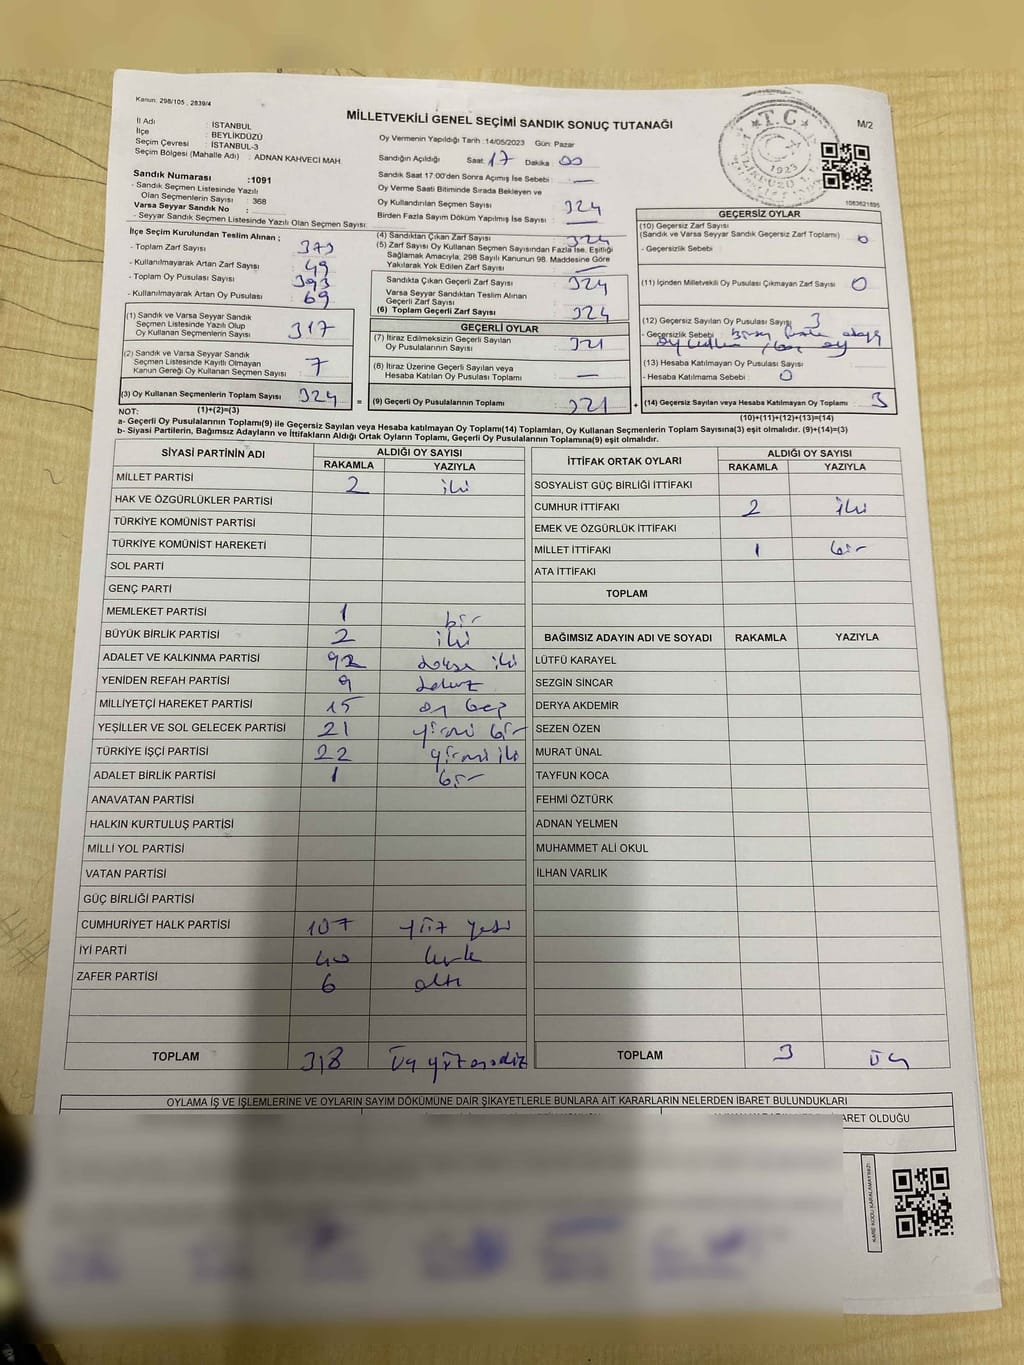 Kanun: 298/105 , 2839/4
MİLLETVEKİLİ GENEL SEÇİMİ SANDIK SONUÇ TUTANAĞI
M/2
T.C.
1923
1083621895
İl Adı : İSTANBUL
İlçe : BEYLİKDÜZÜ
Seçim Çevresi : İSTANBUL-3
Seçim Bölgesi (Mahalle Adı) : ADNAN KAHVECİ MAH
Sandık Numarası :1091
- Sandık Seçmen Listesinde Yazılı
Olan Seçmenlerin Sayısı : 368
Varsa Seyyar Sandık No :
- Seyyar Sandık Seçmen Listesinde Yazılı Olan Seçmen Sayısı
İlçe Seçim Kurulundan Teslim Alınan ;
- Toplam Zarf Sayısı : 373
- Kullanılmayarak Artan Zarf Sayısı : 49
- Toplam Oy Pusulası Sayısı : 393
- Kullanılmayarak Artan Oy Pusulası : 69
(1) Sandık ve Varsa Seyyar Sandık
Seçmen Listesinde Yazılı Olup
Oy Kullanan Seçmenlerin Sayısı : 317
(2) Sandık ve Varsa Seyyar Sandık
Seçmen Listesinde Kayıtlı Olmayan
Kanun Gereği Oy Kullanan Seçmen Sayısı : 7
(3) Oy Kullanan Seçmenlerin Toplam Sayısı 324 =
Oy Vermenin Yapıldığı Tarih : 14/05/2023 Gün: Pazar
Sandığın Açıldığı Saat: 17 Dakika 00
Sandık Saat 17:00'den Sonra Açımış İse Sebebi : —
Oy Verme Saati Bitiminde Sırada Bekleyen ve
Oy Kullandırılan Seçmen Sayısı : 324
Birden Fazla Sayım Döküm Yapılmış İse Sayısı : —
(4) Sandıktan Çıkan Zarf Sayısı : 324
(5) Zarf Sayısı Oy Kullanan Seçmen Sayısından Fazla İse, Eşitliği
Sağlamak Amacıyla; 298 Sayılı Kanunun 98. Maddesine Göre
Yakılarak Yok Edilen Zarf Sayısı : —
Sandıkta Çıkan Geçerli Zarf Sayısı : 324
Varsa Seyyar Sandıktan Teslim Alınan
Geçerli Zarf Sayısı
(6) Toplam Geçerli Zarf Sayısı : 324
GEÇERLİ OYLAR
(7) İtiraz Edilmeksizin Geçerli Sayılan
Oy Pusulalarının Sayısı : 321
(8) İtiraz Üzerine Geçerli Sayılan veya
Hesaba Katılan Oy Pusulası Toplamı : —
(9) Geçerli Oy Pusulalarının Toplamı : 321 +
GEÇERSİZ OYLAR
(10) Geçersiz Zarf Sayısı
(Sandık ve Varsa Seyyar Sandık Geçersiz Zarf Toplamı) : 0
- Geçersizlik Sebebi
(11) İçinden Milletvekili Oy Pusulası Çıkmayan Zarf Sayısı : 0
(12) Geçersiz Sayılan Oy Pusulası Sayısı : 3
- Geçersizlik Sebebi : Birden fazla
oy
(13) Hesaba Katılmayan Oy Pusulası Sayısı :
- Hesaba Katılmama Sebebi : 0
(14) Geçersiz Sayılan veya Hesaba Katılmayan Oy Toplamı : 3
NOT: (1)+(2)=(3)
(10)+(11)+(12)+(13)=(14)
a- Geçerli Oy Pusulalarının Toplamı(9) ile Geçersiz Sayılan veya Hesaba katılmayan Oy Toplamı(14) Toplamları, Oy Kullanan Seçmenlerin Toplam Sayısına(3) eşit olmalıdır. (9)+(14)=(3)
b- Siyasi Partilerin, Bağımsız Adayların ve İttifakların Aldığı Ortak Oyların Toplamı, Geçerli Oy Pusulalarının Toplamına(9) eşit olmalıdır.
SİYASİ PARTİNİN ADI ALDIĞI OY SAYISI
RAKAMLA YAZIYLA
MİLLET PARTİSİ 2 iki
HAK VE ÖZGÜRLÜKLER PARTİSİ
TÜRKİYE KOMÜNİST PARTİSİ
TÜRKİYE KOMÜNİST HAREKETİ
SOL PARTİ
GENÇ PARTİ
MEMLEKET PARTİSİ 1 bir
BÜYÜK BİRLİK PARTİSİ 2 iki
ADALET VE KALKINMA PARTİSİ 92 doksan iki
YENİDEN REFAH PARTİSİ 9 dokuz
MİLLİYETÇİ HAREKET PARTİSİ 15 on beş
YEŞİLLER VE SOL GELECEK PARTİSİ 21 yirmi bir
TÜRKİYE İŞÇİ PARTİSİ 22 yirmi iki
ADALET BİRLİK PARTİSİ 1 bir
ANAVATAN PARTİSİ
HALKIN KURTULUŞ PARTİSİ
MİLLİ YOL PARTİSİ
VATAN PARTİSİ
GÜÇ BİRLİĞİ PARTİSİ
CUMHURİYET HALK PARTİSİ 107 yüz yedi
İYİ PARTİ 40 kırk
ZAFER PARTİSİ 6 altı
TOPLAM 318 üç yüz onsekiz
İTTİFAK ORTAK OYLARI ALDIĞI OY SAYISI
RAKAMLA YAZIYLA
SOSYALİST GÜÇ BİRLİĞİ İTTİFAKI
CUMHUR İTTİFAKI 2 iki
EMEK VE ÖZGÜRLÜK İTTİFAKI
MİLLET İTTİFAKI 1 bir
ATA İTTİFAKI
TOPLAM
BAĞIMSIZ ADAYIN ADI VE SOYADI RAKAMLA YAZIYLA
LÜTFÜ KARAYEL
SEZGİN SİNCAR
DERYA AKDEMİR
SEZEN ÖZEN
MURAT ÜNAL
TAYFUN KOCA
FEHMİ ÖZTÜRK
ADNAN YELMEN
MUHAMMET ALİ OKUL
İLHAN VARLIK
TOPLAM 3 üç
OYLAMA İŞ VE İŞLEMLERİNE VE OYLARIN SAYIM DÖKÜMÜNE DAİR ŞİKAYETLERLE BUNLARA AİT KARARLARIN NELERDEN İBARET BULUNDUKLARI
İBARET OLDUĞU
KARE KODU KARALAMAYINIZ!